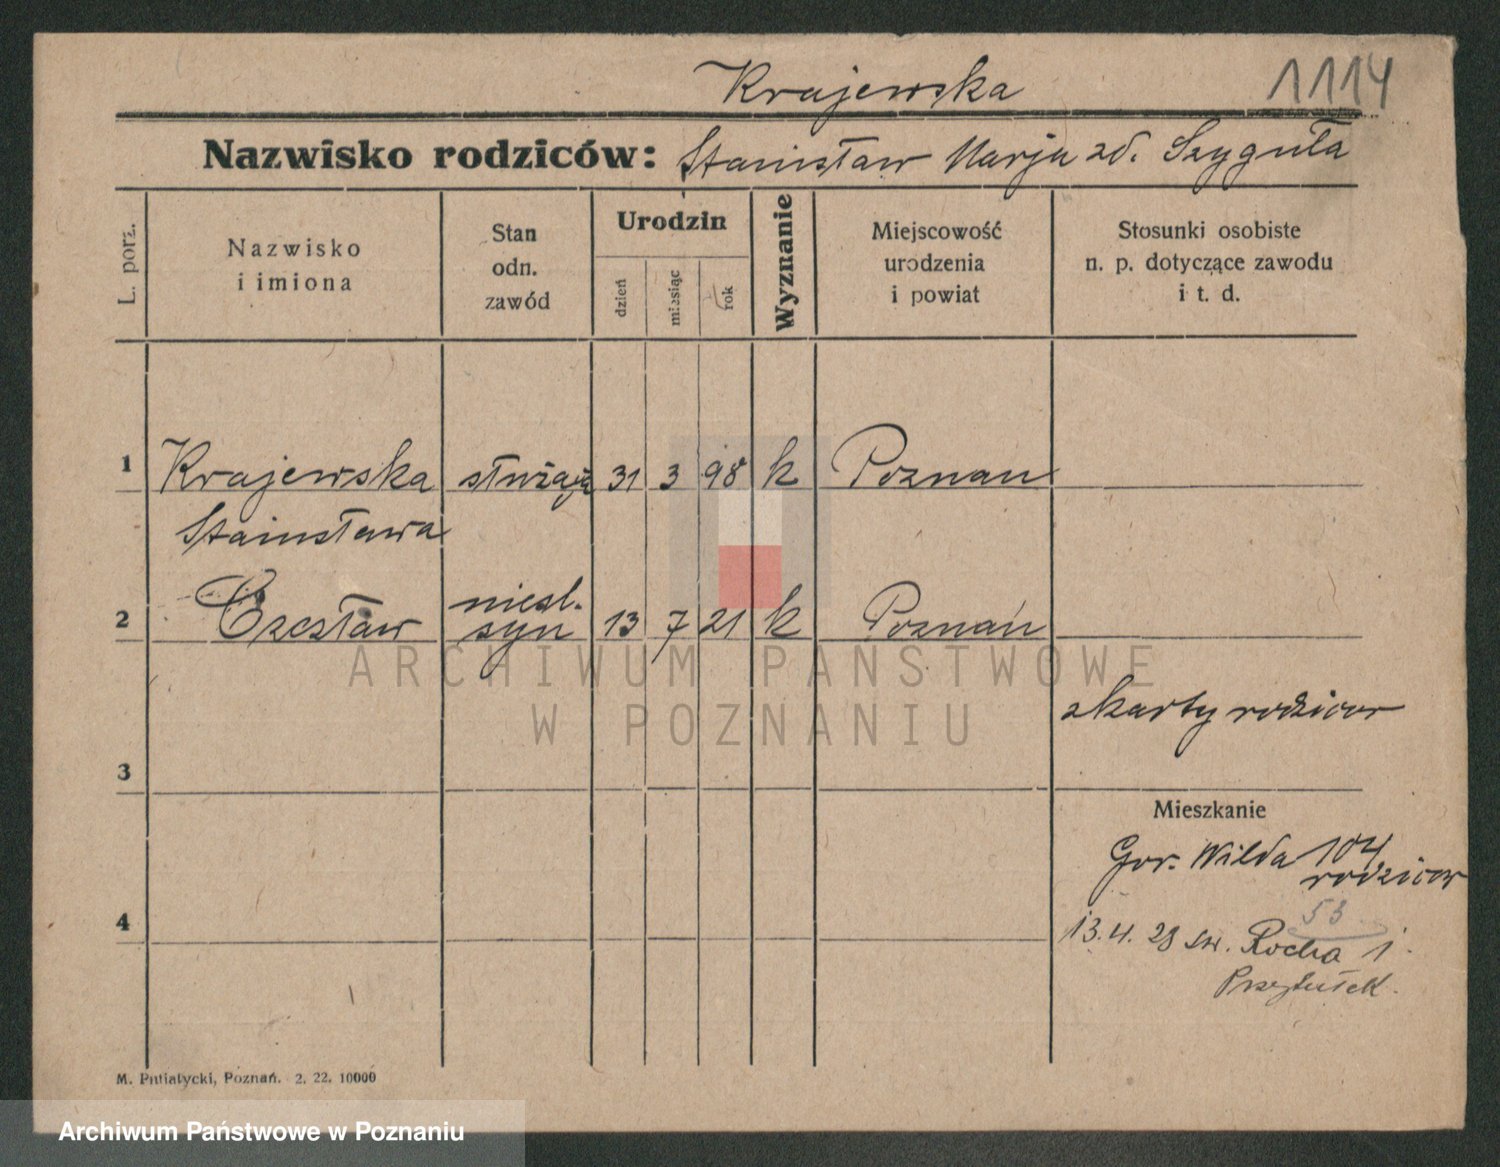 Krajewska 1114
Nazwisko rodziców: Stanisław Marja zd. Szyguła
L. porz.
Nazwisko
i imiona
Stan
odn.
zawód
Urodzin
dzień
miesiąc
rok
Wyznanie
Miejscowość
urodzenia
i powiat
Stosunki osobiste
n. p. dotyczące zawodu
i t. d.
1 Krajewska służąca 31 3 98 k Poznan
Stanisława
niesl.
2 Czesław syn 13 7 21 k Poznań
ARCHIWUM PAŃSTWOWE
W POZNANIU
z karty rodzicow
3
Mieszkanie
Gor. Wilda 104
rodzicow
53
4
13.4.28 sw. Rocha 1
Przytułek.
M. Putiatycki, Poznań. 2. 22. 10000
Archiwum Państwowe w Poznaniu